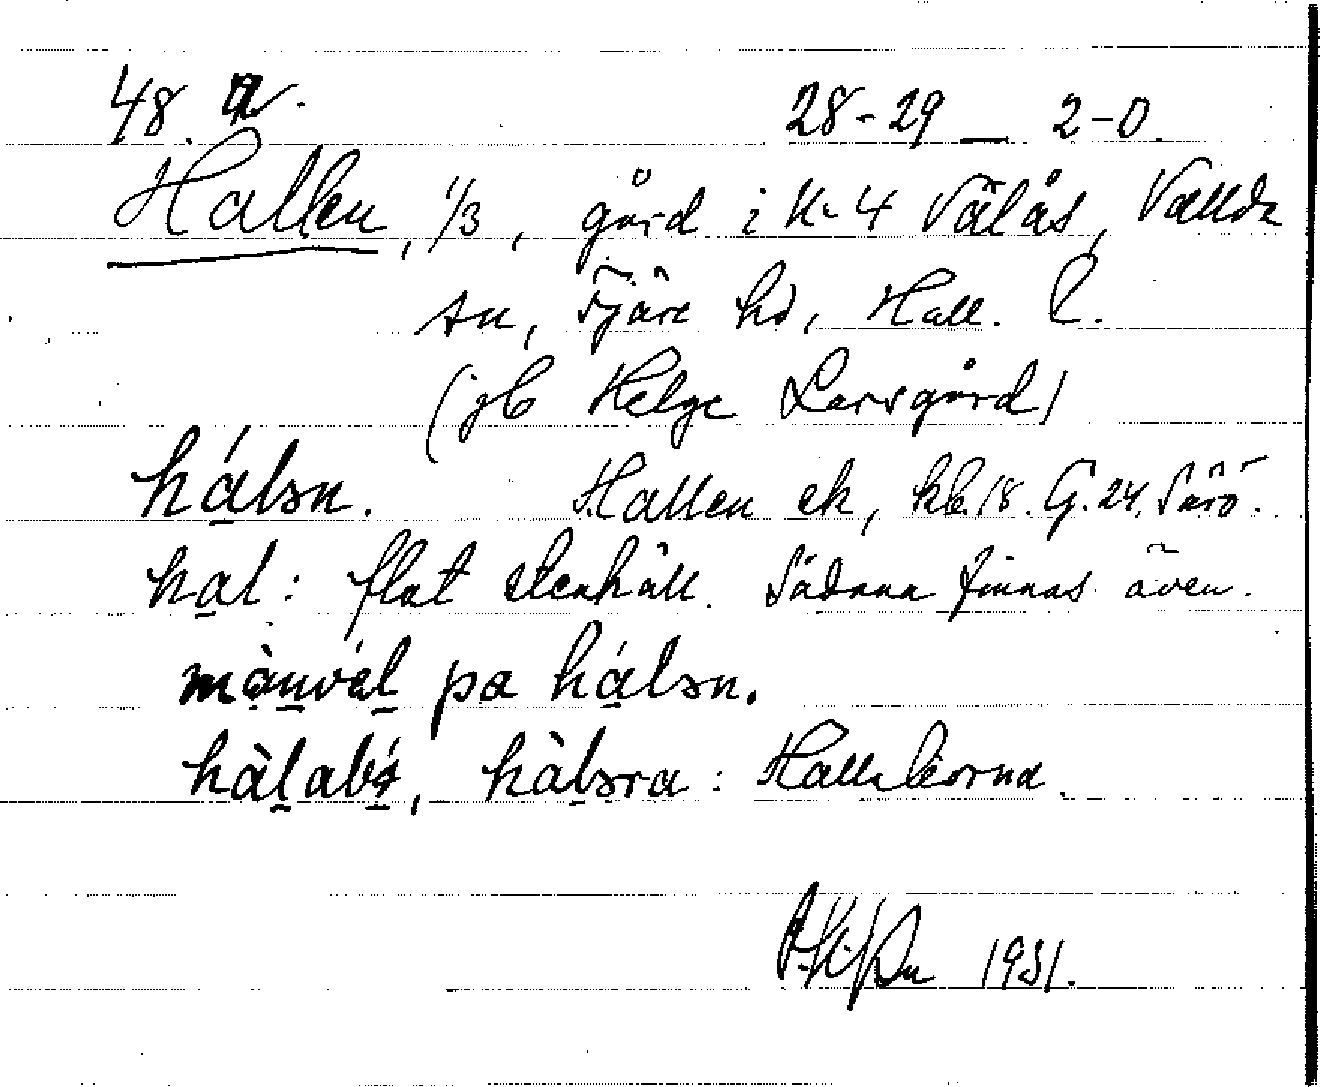 48. 28-29 — 2-0.
Hallen, 1/3, gård i K-4 Välås, Vallda
sn, Fjäre hd, Hall. l.
(jb Helge Larsgård)
hálən. Hallen ek, kb. 18. G. 24. Särö.
hal: flat stenhäll. Sådana finnas även.
pa hálən.
hàləra: Hallaborna.
1931.